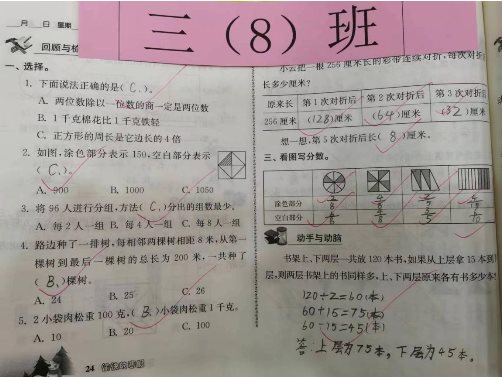 三（8）班
月 日 星期
回顾与检
一、选择。
1. 下面说法正确的是( C. )。
A. 两位数除以一位数的商一定是两位数
B. 1千克棉花比1千克铁轻
C. 正方形的周长是它边长的4倍
2. 如图,涂色部分表示150,空白部分表示
( C. )。
A. 900 B. 1000 C. 1050
3. 将96人进行分组,方法( C. )分出的组数最少。
A. 每2人一组 B. 每4人一组 C. 每8人一组
4. 路边种了一排树,每相邻两棵树相距8米,从第一
棵树到最后一棵树的总长为200米,一共种了
( B. )棵树。
A. 24 B. 25 C. 26
5. 2小袋肉松重100克,( B. )小袋肉松重1千克。
A. 10 B. 20 C. 100
24
小云把一根256厘米长的彩带连续对折,每次对折
长多少厘米?
原来长 第1次对折后 第2次对折后 第3次对折后
256厘米 (128)厘米 (64)厘米 (32)厘米
想一想,第5次对折后长( 8 )厘米。
三、看图写分数。
涂色部分
空白部分
动手与动脑
书架上、下两层一共放120本书,如果从上层拿15本到
层,则两层书架上的书同样多,上、下两层原来各有书多少本
120÷2=60(本)
60+15=75(本)
60-15=45(本)
答:上层为75本,下层为45本。